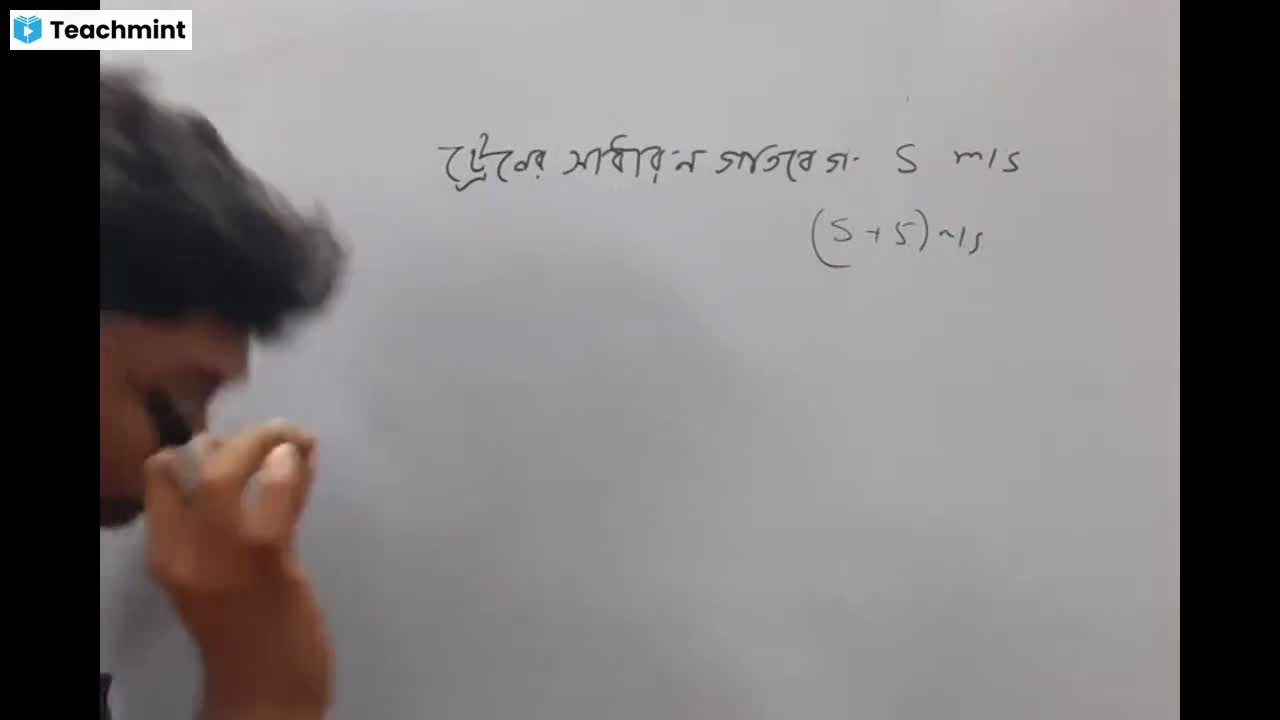 Teachmint
ট্রেনের সাধারন গতিবেগ S m/s
(S + 5) m/s